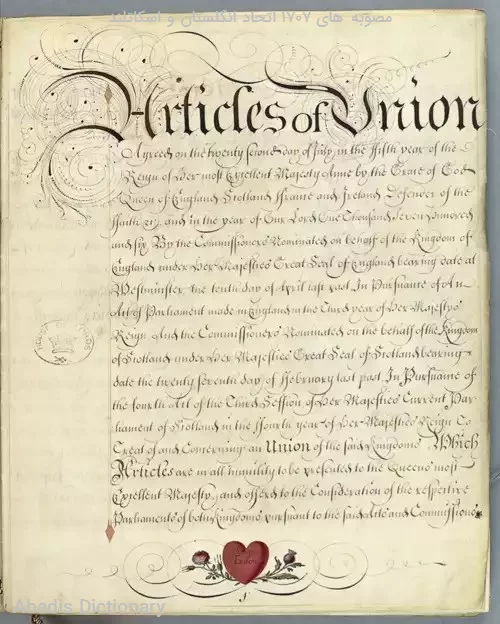 مصوبه های ۱۷۰۷ اتحاد انگلستان و اسکاتلند
Articles of Union
Agreed on the twenty second day of July, in the ffifth year of the
Reign of Her most Excellent Majesty Anne by the Grace of God
Queen of England Scotland ffrance and Ireland Defender of the
ffaith &c. and in the year of Our Lord One Thousand Seven Hundred
and six, By the Commissioners Nominated on behalf of the Kingdom of
England under Her Majesties Great Seal of England bearing date at
Westminster the tenth day of April last past In Pursuance of An
Act of Parliament made in England in the Third year of Her Majestys
Reign And the Commissioners Nominated on the behalf of the Kingdom
of Scotland under Her Majesties Great Seal of Scotland bearing
date the twenty seventh day of ffebruary last past, In Pursuance of
the fourth Act of the Third Session of Her Majesties Current Par
liament of Scotland in the ffourth year of Her Majesties Reign To
Treat of and Concerning an Union of the said Kingdoms Which
Articles are in all humility to be presented to the Queens most
Excellent Majesty, and offered to the Consideration of the respective
Parliaments of both Kingdoms pursuant to the said Acts and Commissions
Abadis Dictionary